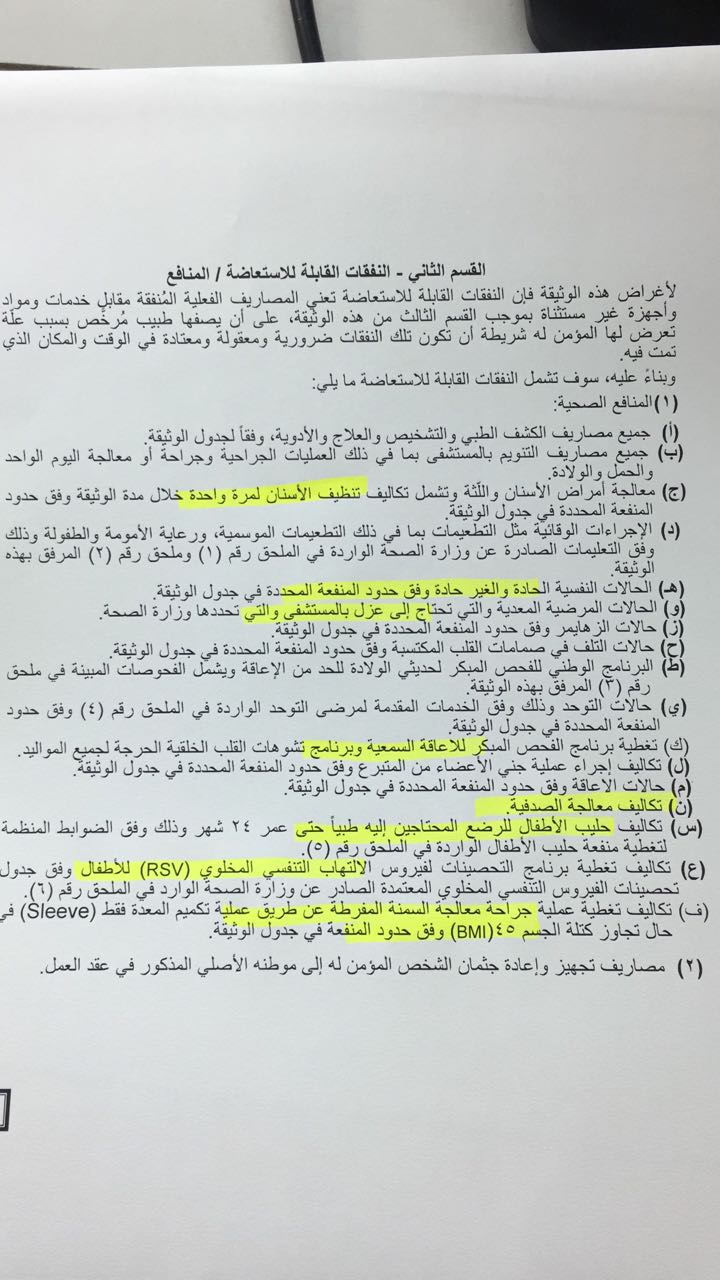 القسم الثاني - النفقات القابلة للاستعاضة / المنافع
لأغراض هذه الوثيقة فإن النفقات القابلة للاستعاضة تعني المصاريف الفعلية المُنفقة مقابل خدمات ومواد
وأجهزة غير مستثناة بموجب القسم الثالث من هذه الوثيقة، على أن يصفها طبيب مُرخّص بسبب علّة
تعرض لها المؤمن له شريطة أن تكون تلك النفقات ضرورية ومعقولة ومعتادة في الوقت والمكان الذي
تمت فيه.
وبناءً عليه، سوف تشمل النفقات القابلة للاستعاضة ما يلي:
(١) المنافع الصحية:
(أ) جميع مصاريف الكشف الطبي والتشخيص والعلاج والأدوية، وفقاً لجدول الوثيقة.
(ب) جميع مصاريف التنويم بالمستشفى بما في ذلك العمليات الجراحية وجراحة أو معالجة اليوم الواحد
والحمل والولادة.
(ج) معالجة أمراض الأسنان واللّثة وتشمل تكاليف تنظيف الأسنان لمرة واحدة خلال مدة الوثيقة وفق حدود
المنفعة المحددة في جدول الوثيقة.
(د) الإجراءات الوقائية مثل التطعيمات بما في ذلك التطعيمات الموسمية، ورعاية الأمومة والطفولة وذلك
وفق التعليمات الصادرة عن وزارة الصحة الواردة في الملحق رقم (١) وملحق رقم (٢) المرفق بهذه
الوثيقة.
(هـ) الحالات النفسية الحادة والغير حادة وفق حدود المنفعة المحددة في جدول الوثيقة.
(و) الحالات المرضية المعدية والتي تحتاج إلى عزل بالمستشفى والتي تحددها وزارة الصحة.
(ز) حالات الزهايمر وفق حدود المنفعة المحددة في جدول الوثيقة.
(ح) حالات التلف في صمامات القلب المكتسبة وفق حدود المنفعة المحددة في جدول الوثيقة.
(ط) البرنامج الوطني للفحص المبكر لحديثي الولادة للحد من الإعاقة ويشمل الفحوصات المبينة في ملحق
رقم (٣) المرفق بهذه الوثيقة.
(ي) حالات التوحد وذلك وفق الخدمات المقدمة لمرضى التوحد الواردة في الملحق رقم (٤) وفق حدود
المنفعة المحددة في جدول الوثيقة.
(ك) تغطية برنامج الفحص المبكر للاعاقة السمعية وبرنامج تشوهات القلب الخلقية الحرجة لجميع المواليد.
(ل) تكاليف إجراء عملية جني الأعضاء من المتبرع وفق حدود المنفعة المحددة في جدول الوثيقة.
(م) حالات الاعاقة وفق حدود المنفعة المحددة في جدول الوثيقة.
(ن) تكاليف معالجة الصدفية.
(س) تكاليف حليب الأطفال للرضع المحتاجين إليه طبياً حتى عمر ٢٤ شهر وذلك وفق الضوابط المنظمة
لتغطية منفعة حليب الأطفال الواردة في الملحق رقم (٥).
(ع) تكاليف تغطية برنامج التحصينات لفيروس الالتهاب التنفسي المخلوي (RSV) للأطفال وفق جدول
تحصينات الفيروس التنفسي المخلوي المعتمدة الصادر عن وزارة الصحة الوارد في الملحق رقم (٦).
(ف) تكاليف تغطية عملية جراحة معالجة السمنة المفرطة عن طريق عملية تكميم المعدة فقط (Sleeve) في
حال تجاوز كتلة الجسم ٤٥(BMI) وفق حدود المنفعة في جدول الوثيقة.
(٢) مصاريف تجهيز وإعادة جثمان الشخص المؤمن له إلى موطنه الأصلي المذكور في عقد العمل.